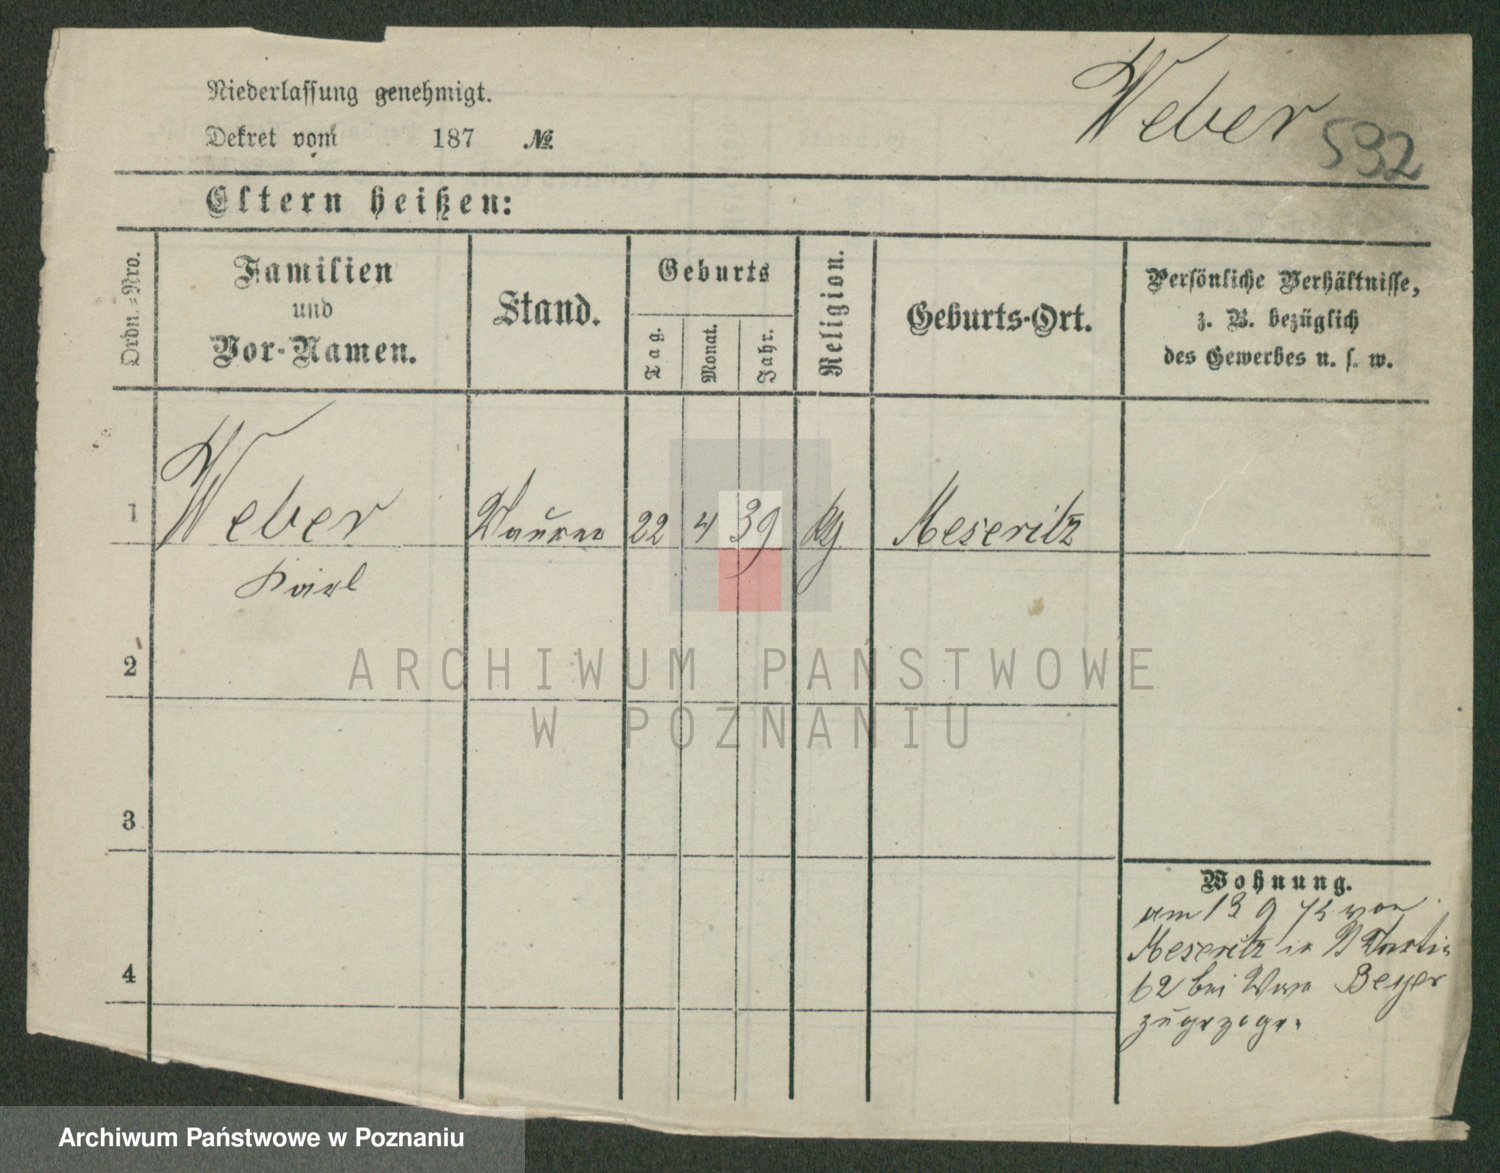 Niederlassung genehmigt.
Weber
Dekret vom 187 №
532
Eltern heißen:
Ordn.-Nro.
Familien
und
Vor-Namen.
Stand.
Geburts
Tag.
Monat.
Jahr.
Religion.
Geburts-Ort.
Persönliche Verhältnisse,
z. B. bezüglich
des Gewerbes u. s. w.
1 Weber Maurer 22 4 39 Meseritz
Karl
2
3
4
Wohnung.
am 13 9 75 von
Meseritz in St Martin
62 bei Wwe Beyer
zugezogen
ARCHIWUM PAŃSTWOWE
W POZNANIU
Archiwum Państwowe w Poznaniu